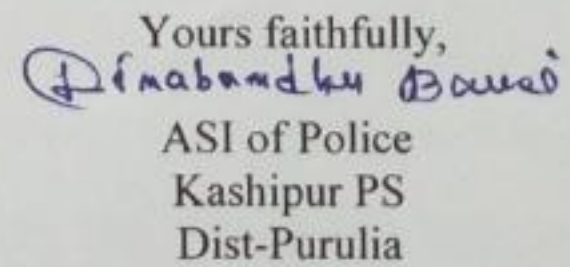 Yours faithfully,
Dinabandhu Bauri
ASI of Police
Kashipur PS
Dist-Purulia